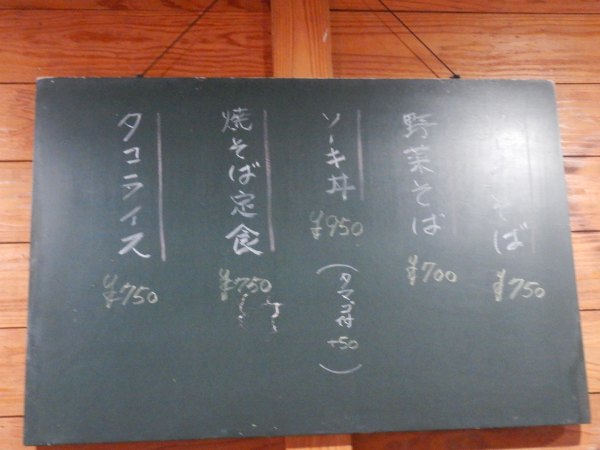 そば
¥750
野菜そば
¥700
ソーキ丼
¥950
(タマゴ付
+50)
焼そば定食
¥750
タコライス
¥750